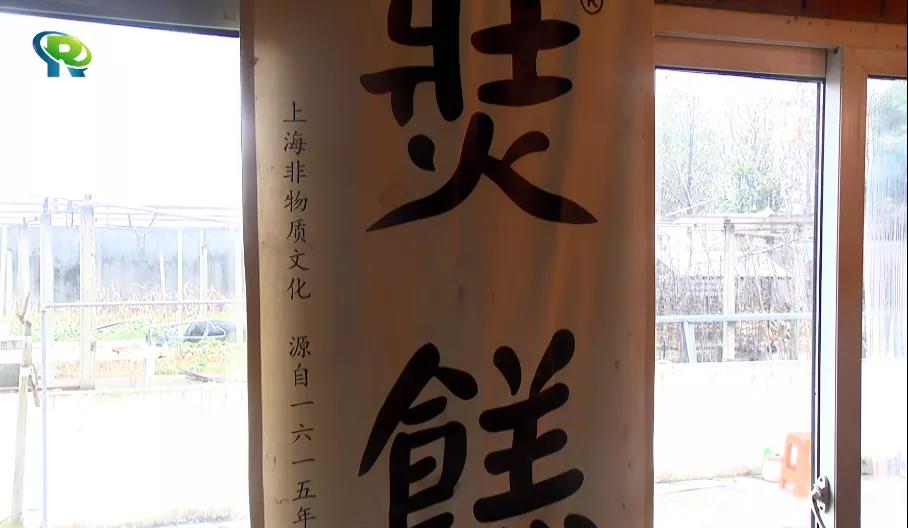 焋餻
®
上海非物质文化 源自一六一五年
R